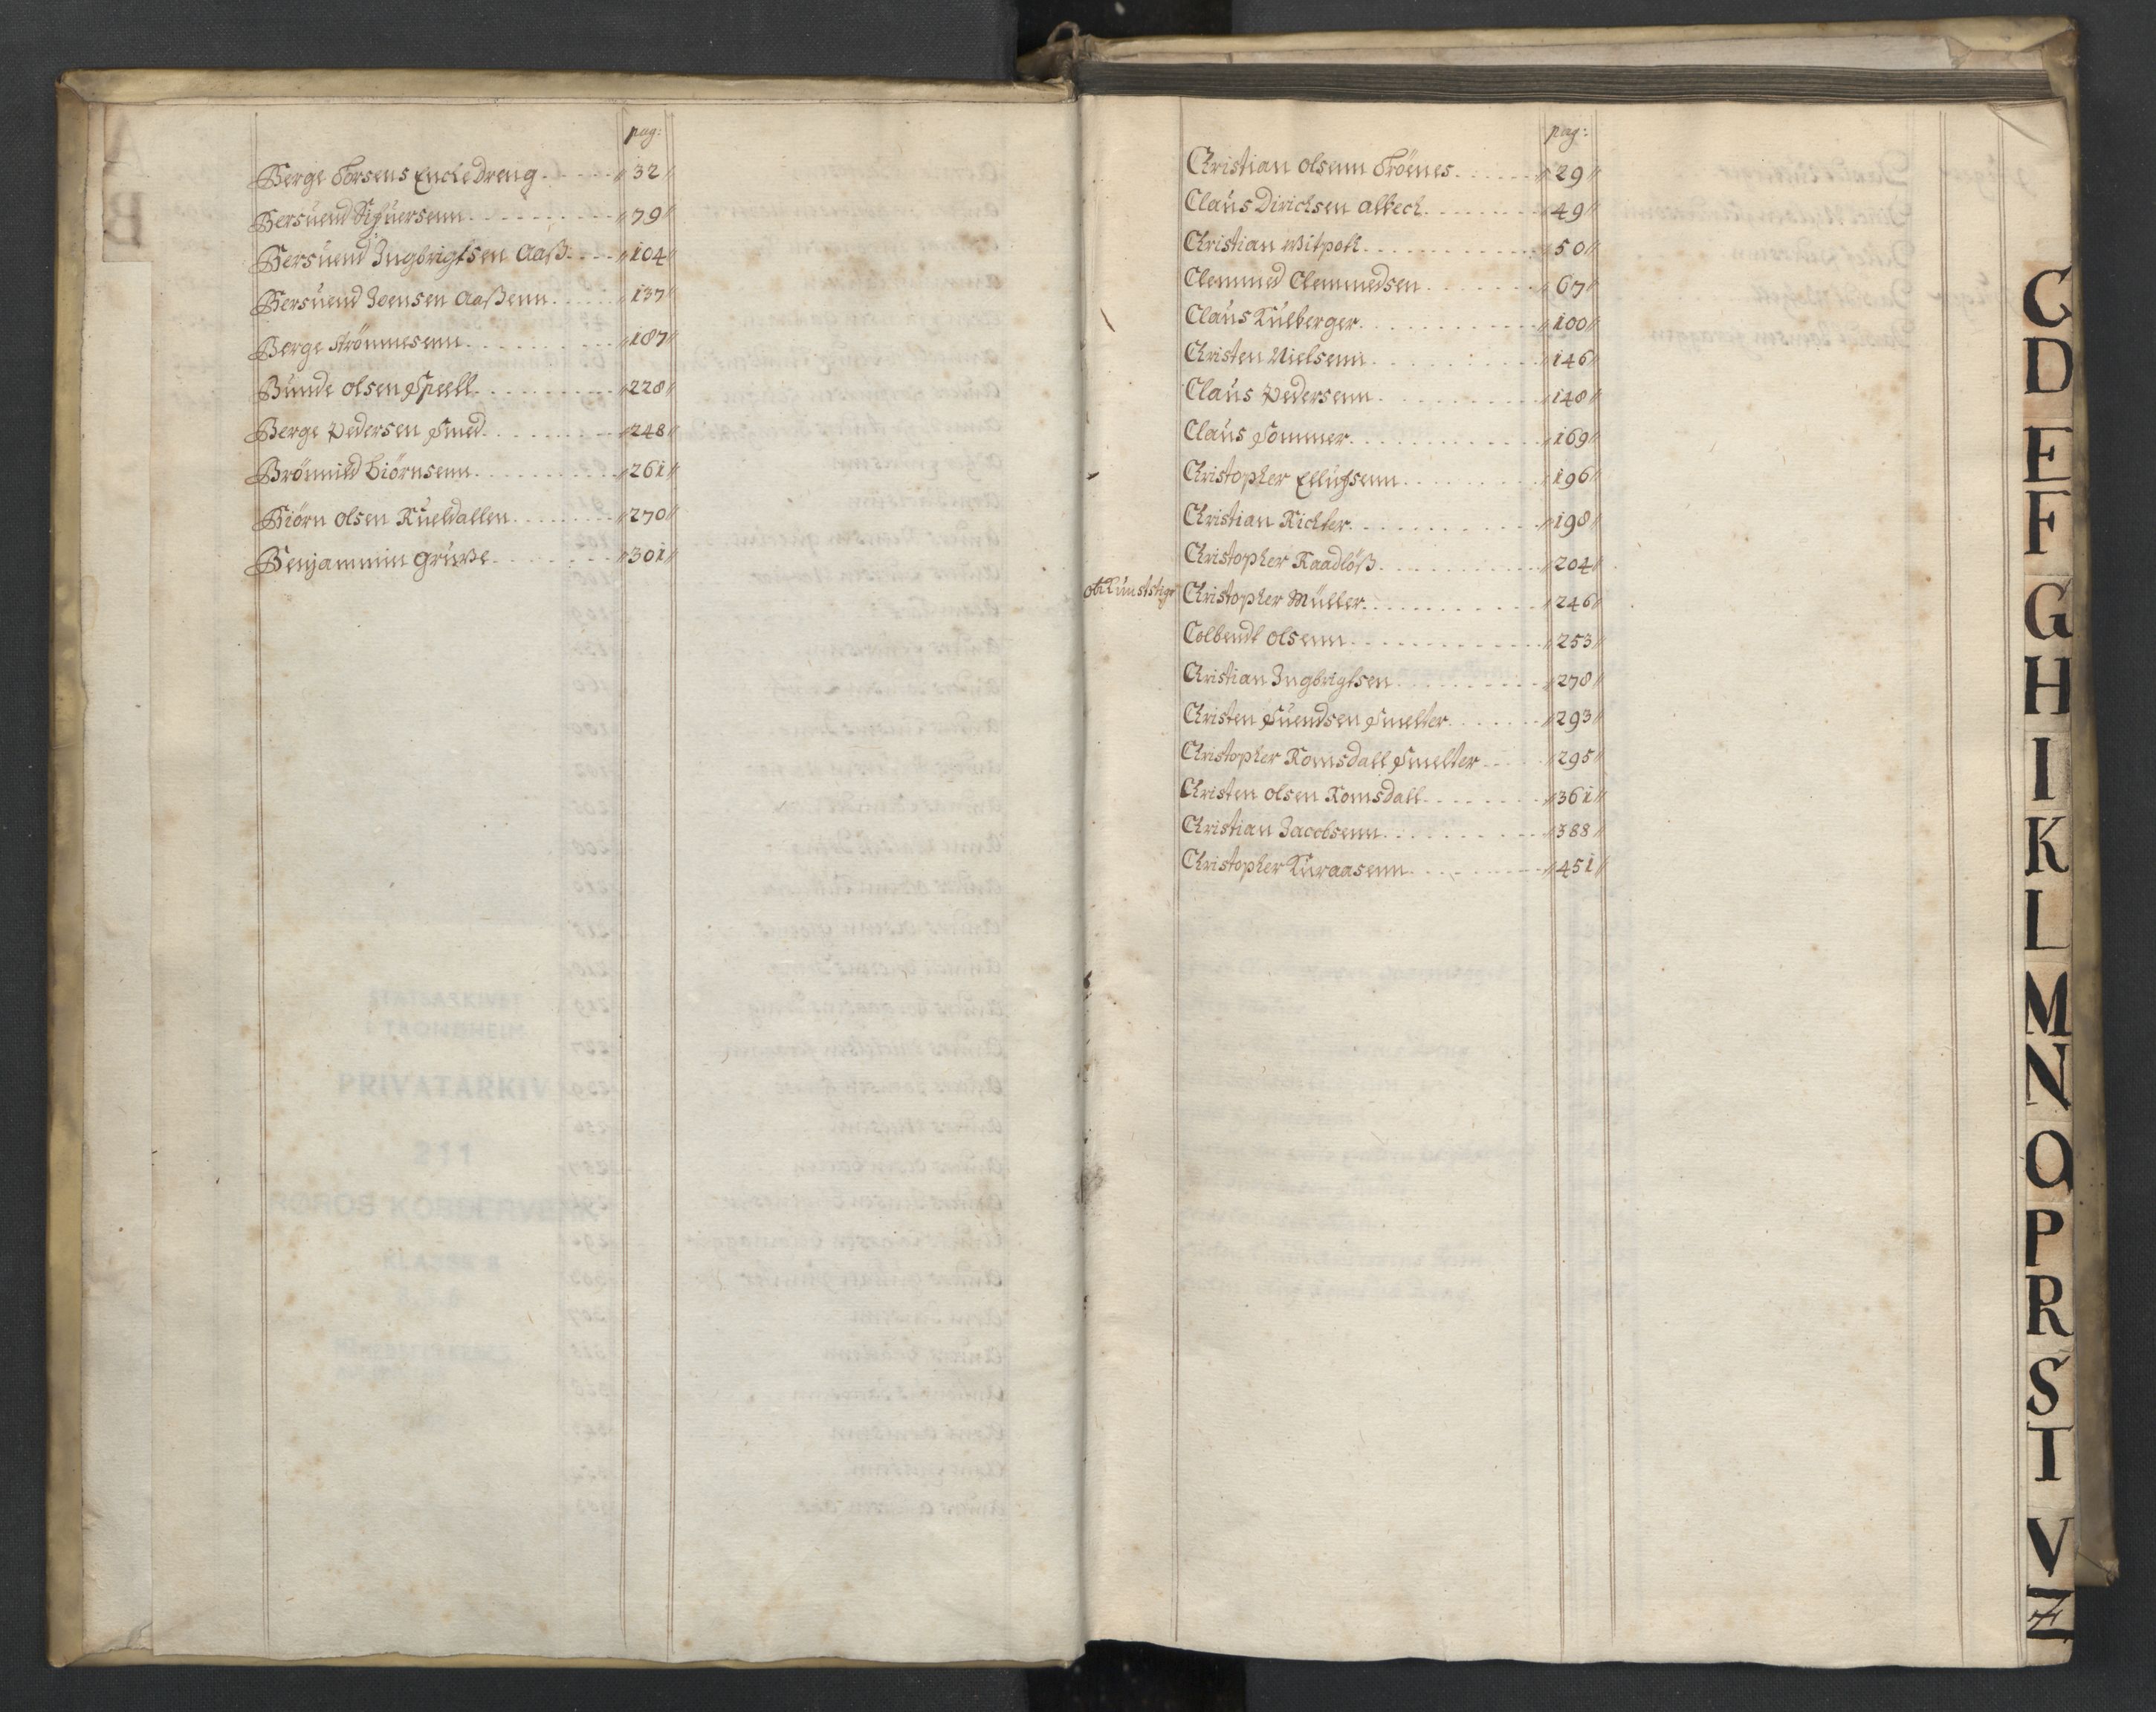 pag:
Berge Torsens Enchedreng 32
Bersuend Sifuersenn 79
Bersuend Ingbrigtsen Aaß 104
Bersuend Joensen Aaßenn 137
Berge Strönnesenn 187
Bunde olsen Speell 228
Berge Pedersen Smed 248
Brönnild Biörnsenn 261
Biörn olsen Kueldallen 270
Benjammin Gruwe 301
pag:
Christian olsenn Tröenes 29
Claus Dirichsen Albech 49
Christian Witpott 50
Clemmed Clemmedsen 67
Claus Kulberger 100
Christen Nielsenn 146
Claus Pedersenn 148
Claus Sommer 169
Christopher Ellufsenn 196
Christian Richter 198
Christopher Raadlöß 204
Christopher Müller 246
Colbendt olsenn 253
Christian Ingbrigtsen 278
Christen Suendsen Smelter 293
Christopher Romsdall Smelter 295
Christen olsen Romsdall 361
Christian Jacobsenn 388
Christopher Kuraasenn 451
B
C
D
E
F
G
H
I
K
L
M
N
O
P
R
S
T
V
Z